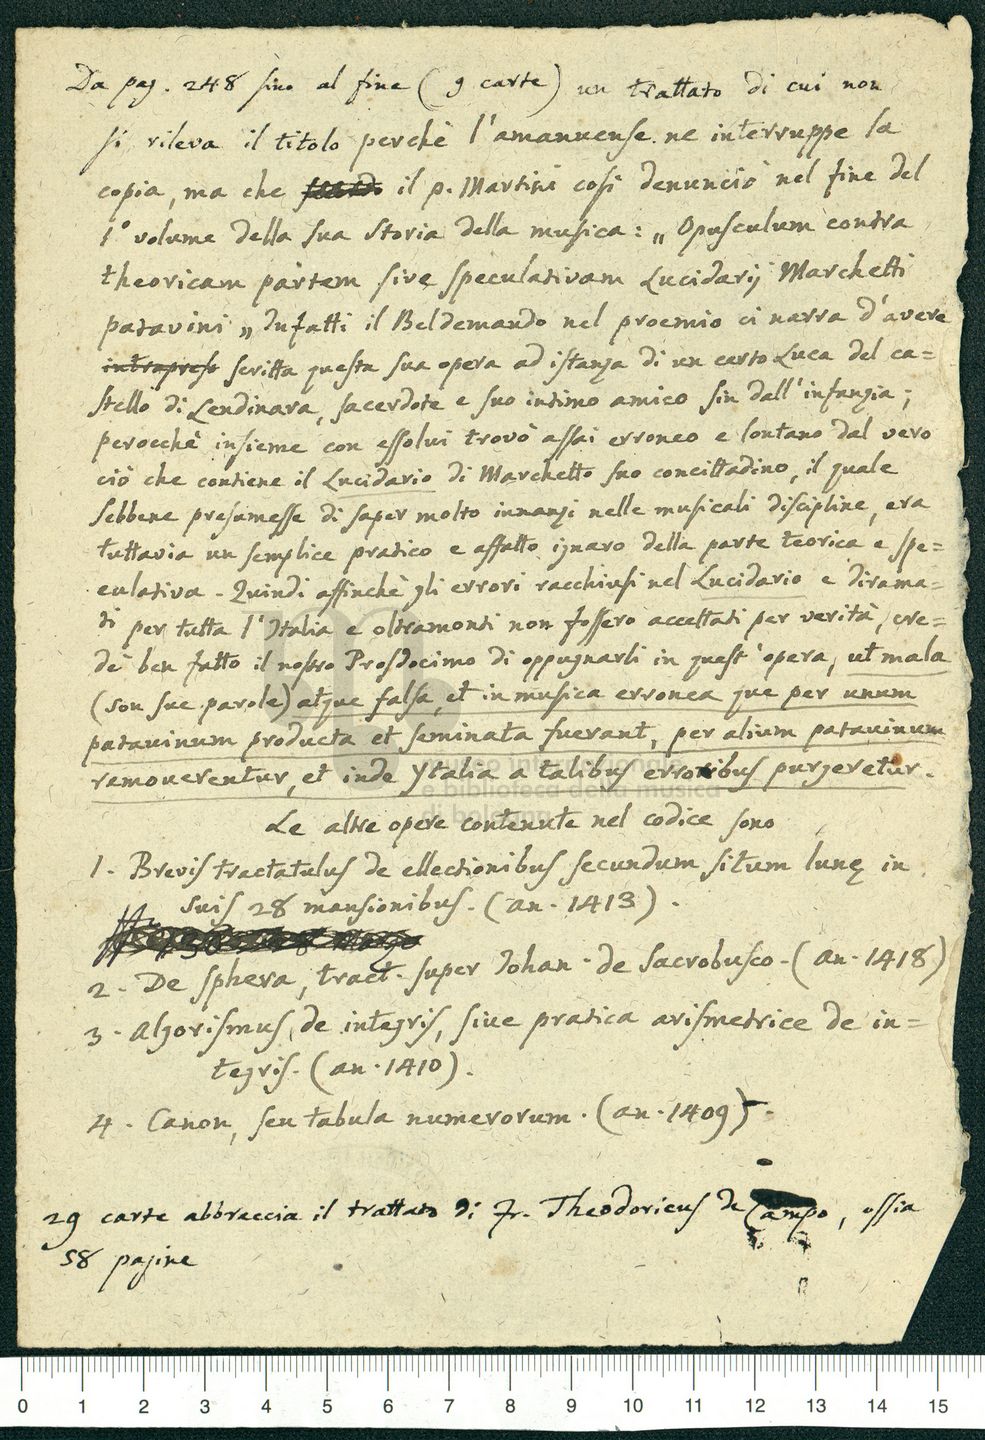 Da pag. 248 sino al fine (9 carte) un trattato di cui non
si rileva il titolo perchè l'amanuense ne interruppe la
copia, ma che il p. Martini così denunciò nel fine del
1° volume della sua Storia della musica: „ Opusculum contra
theoricam partem sive speculativam Lucidarij Marchetti
patavini „ Infatti il Beldemando nel proemio ci narra d'avere
intrapreso scritta questa sua opera ad istanza di un certo Luca del ca=
stello di Lendinara, sacerdote e suo intimo amico sin dall'infanzia;
perocchè insieme con essolui trovò assai erroneo e lontano dal vero
ciò che contiene il Lucidario di Marchetto suo concittadino, il quale
sebbene presumesse di saper molto innanzi nelle musicali discipline, era
tuttavia un semplice pratico e affatto ignaro della parte teorica e spe=
culativa. Quindi affinchè gli errori racchiusi nel Lucidario e dirama=
ti per tutta l'Italia e oltramonti non fossero accettati per verità, cre=
dè ben fatto il nostro Prosdocimo di oppugnarli in quest'opera, ut mala
(son sue parole) atque falsa, et in musica erronea que per unum
patavinum producta et seminata fuerant, per alium patauinum
ramouerentur, et inde ytalia a talibus erroribus purgeretur.
museo internazionale
e biblioteca della musica
di bologna
Le altre opere contenute nel codice sono
1. Brevis tractatulus de ellectionibus secundum situm lunę in
suis 28 mansionibus. (an. 1413).
2. De sphera, tract. super Johan. de Sacrobusco. (an. 1418)
3. Algorismus de integris, sive pratica arismetrice de in=
tegris. (an. 1410).
4. Canon, seu tabula numerorum. (an. 1409).
29 carte abbraccia il trattato di Fr. Theodoricus de Campo, ossia
58 pagine
0 1 2 3 4 5 6 7 8 9 10 11 12 13 14 15